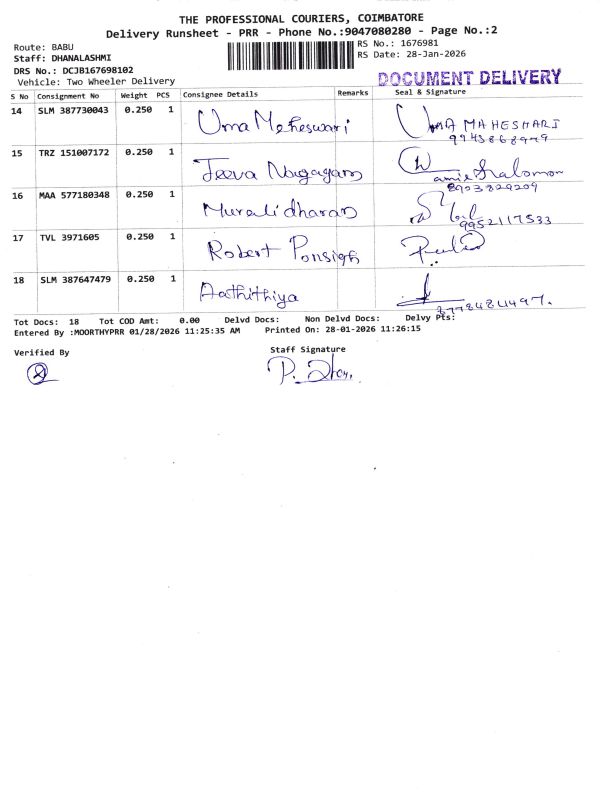 THE PROFESSIONAL COURIERS, COIMBATORE
Delivery Runsheet - PRR - Phone No.:9047080280 - Page No.:2
Route: BABU
RS No.: 1676981
Staff: DHANALASHMI
RS Date: 28-Jan-2026
DRS No.: DCJB167698102
Vehicle: Two Wheeler Delivery
DOCUMENT DELIVERY
S No Consignment No Weight PCS Consignee Details Remarks Seal & Signature
14 SLM 387730043 0.250 1 Uma Maheswari UMA MAHESHARI
15 TRZ 151007172 0.250 1 Jeeva
8903829209
16 MAA 577180348 0.250 1 Muralidharan
9952117533
17 TVL 3971605 0.250 1 Robert Ponsigh
18 SLM 387647479 0.250 1 Aathithiya
Tot Docs: 18 Tot COD Amt: 0.00 Delvd Docs: Non Delvd Docs: Delvy Pts:
Entered By :MOORTHYPRR 01/28/2026 11:25:35 AM Printed On: 28-01-2026 11:26:15
Verified By
Staff Signature